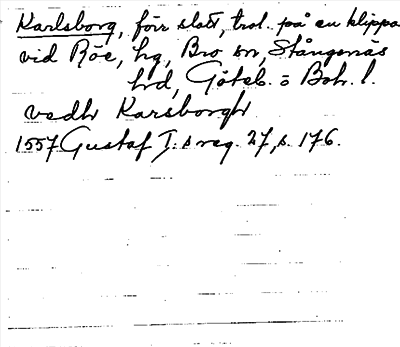 Karlsborg, förr slott, trol. på en klippa
vid Röe, hg, Bro sn, Stångenäs
hd, Göteb. o Boh. l.
vedh Karsborgh
1557 Gustaf I:s reg. 27, s. 176.